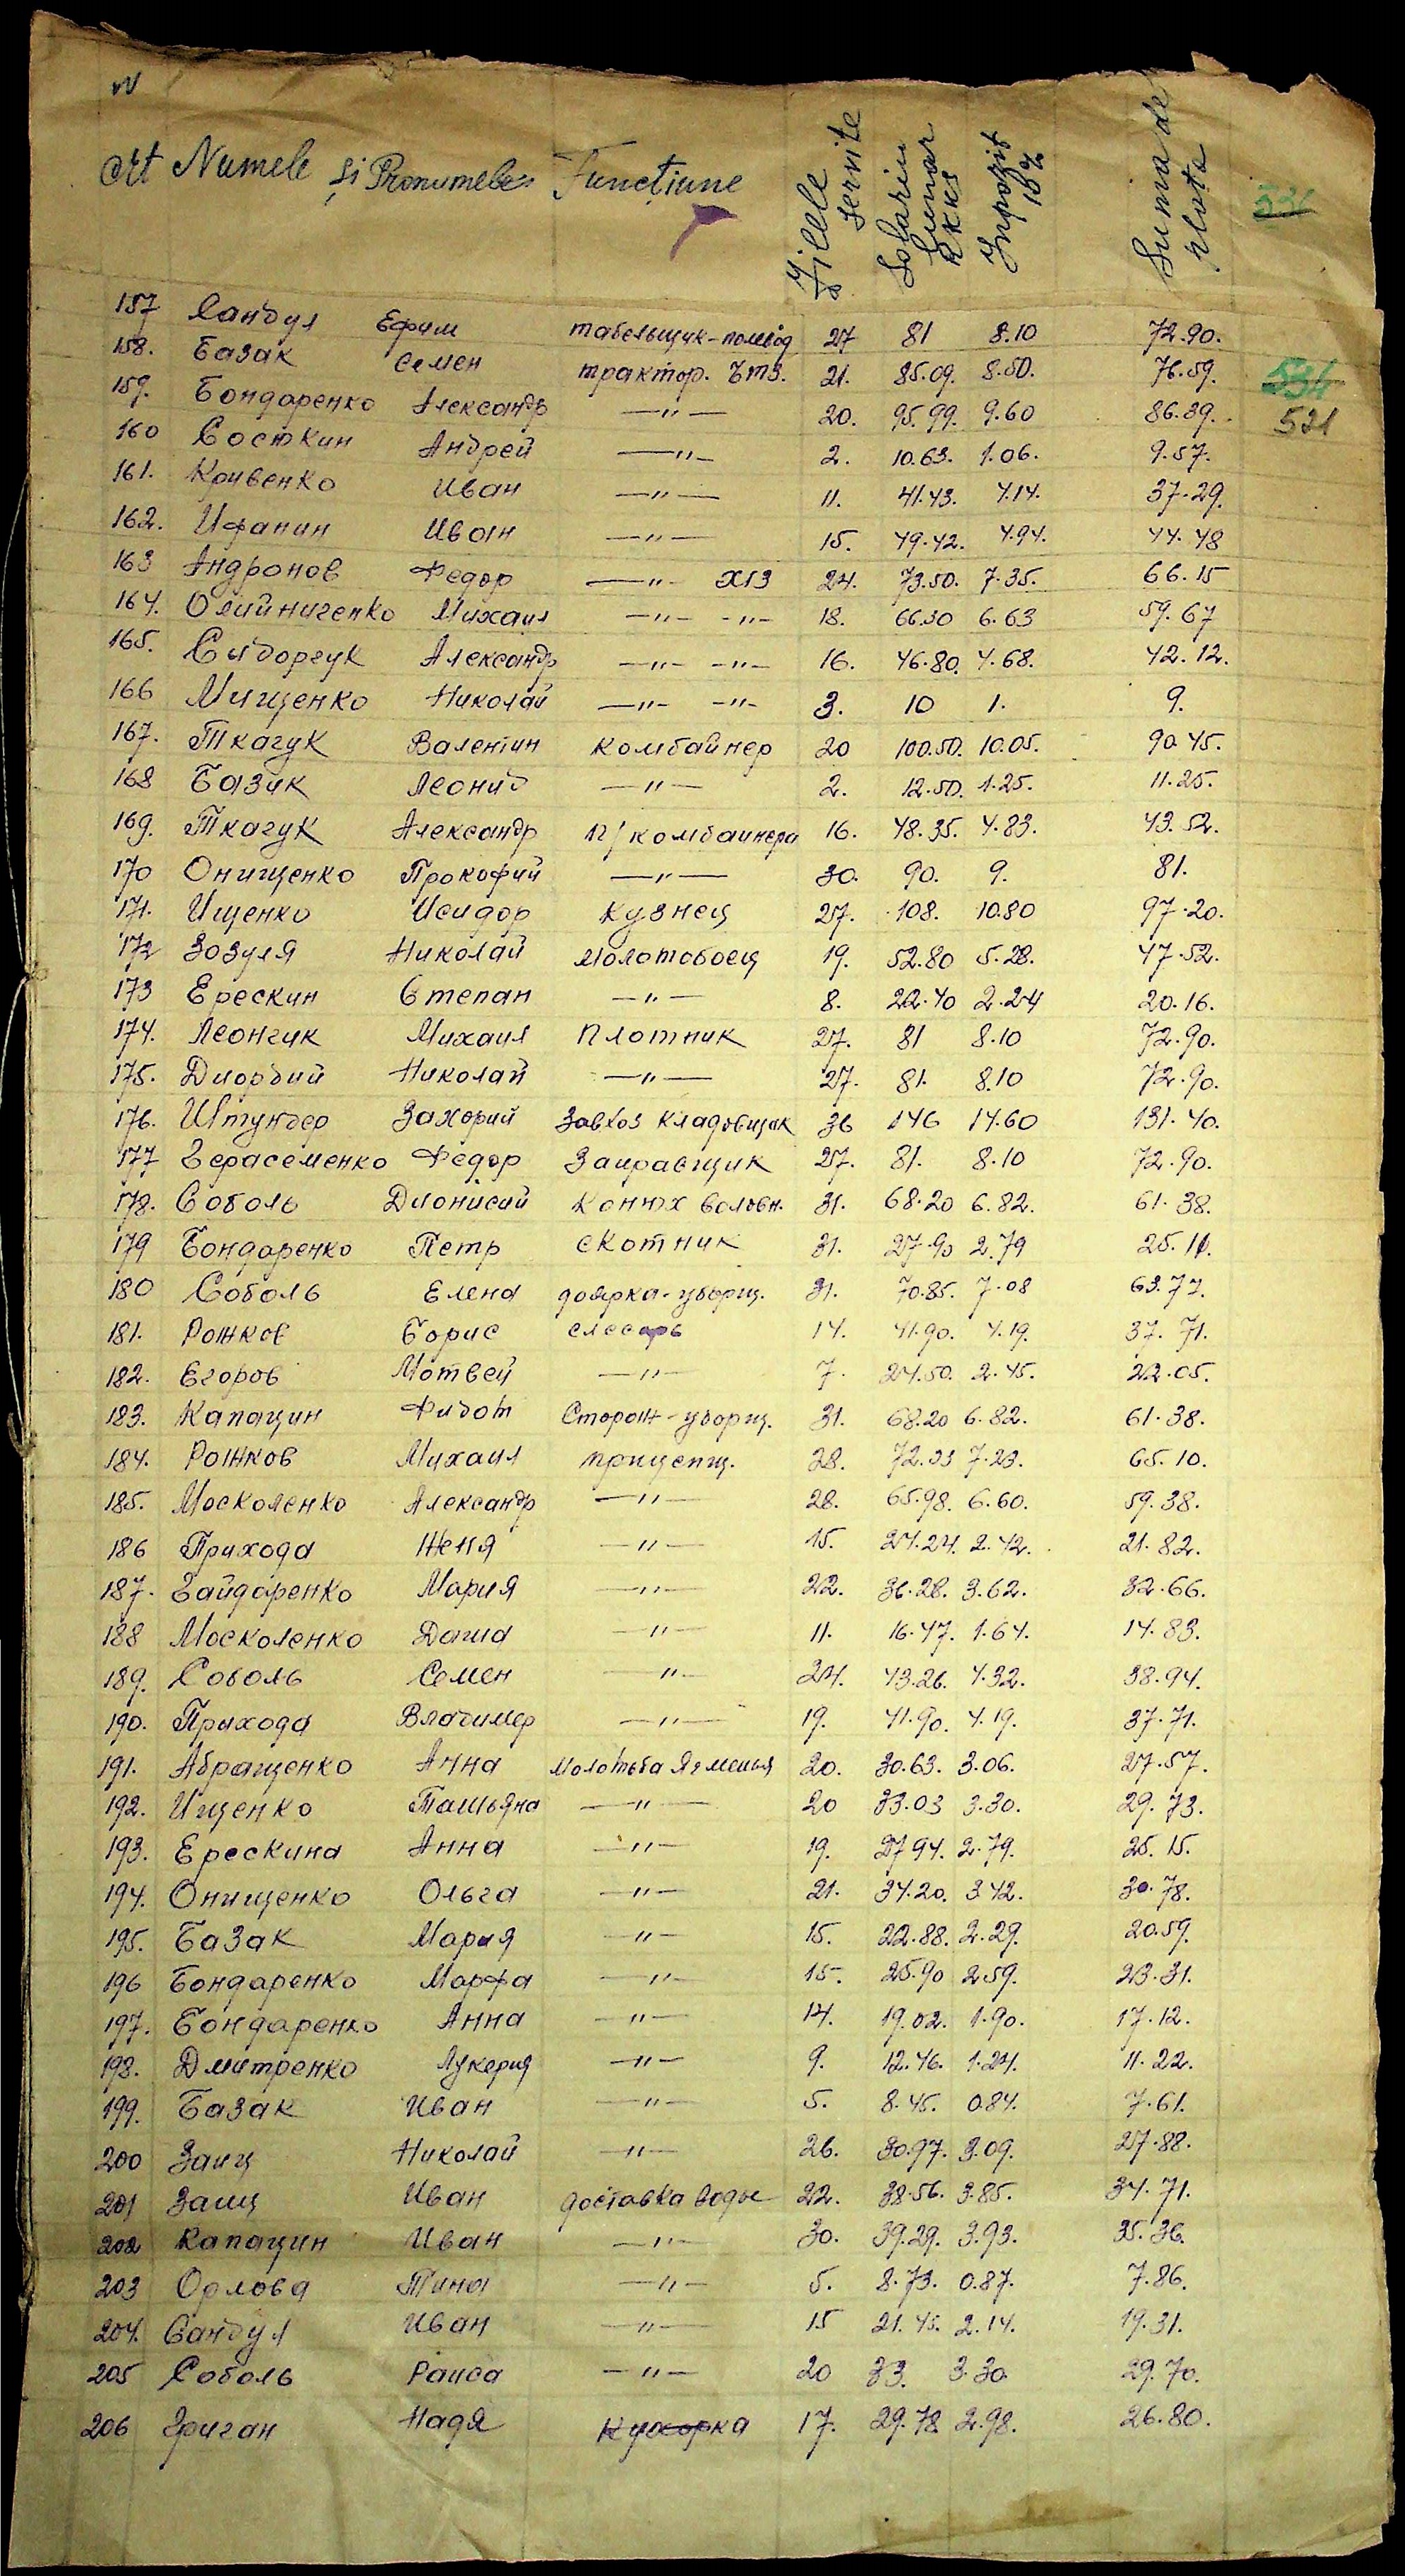 Nr
Crt Numele și Pronumele Funcțiune Zilele servite Solariu Lunar RKKS Impozit 10% Suma de plata
531
157 Сандул Ефим табельщик-помвод 27 81 8.10 72.90.
158. Базак Семен трактор. ЧТЗ. 21. 85.09. 8.50. 76.59.
534
159. Бондаренко Александр —"— 20. 95.99. 9.60 86.39.
521
160 Состкин Андрей —"— 2. 10.63. 1.06. 9.57.
161. Кривенко Иван —"— 11. 41.43. 4.14. 37.29.
162. Ифанин Иван —"— 15. 49.42. 4.94. 44.48
163 Андронов Федор —"— ХТЗ 24. 73.50. 7.35. 66.15
164. Олийниченко Михаил —"— -"- 18. 66.30 6.63 59.67
165. Сыдорчук Александр —"— —"— 16. 46.80. 4.68. 42.12.
166 Мищенко Николай —"— —"— 3. 10 1. 9.
167. Ткачук Валентин комбайнер 20 100.50. 10.05. 90.45.
168 Базик Леонид —"— 2. 12.50. 1.25. 11.25.
169. Ткачук Александр п/комбайнера 16. 48.35. 4.83. 43.52.
170 Онищенко Прокофий —"— 30. 90. 9. 81.
171. Ищенко Исидор кузнец 27. 108. 10.80 97.20.
172 Зозуля Николай молотобоец 19. 52.80 5.28. 47.52.
173 Ерескин Степан —"— 8. 22.40 2.24 20.16.
174. Леончик Михаил плотник 27. 81 8.10 72.90.
175. Диордий Николай —"— 27. 81. 8.10 72.90.
176. Штундер Захорий Завхоз кладовщик 36 146 14.60 131.40.
177 Герасеменко Федор Заправщик 27. 81. 8.10 72.90.
178. Соболь Дионисий Конюх воловн. 31. 68.20 6.82. 61.38.
179 Бондаренко Петр скотник 31. 27.90 2.79 25.11.
180 Соболь Елена доярка-уборщ. 31. 70.85. 7.08 63.77.
181. Рожков Борис слесарь 14. 41.90. 4.19. 37.71.
182. Егоров Мотвей —"— 7. 24.50. 2.45. 22.05.
183. Капацин Фидот Сторож-уборщ. 31. 68.20 6.82. 61.38.
184. Рожков Михаил прицепщ. 28. 72.33 7.23. 65.10.
185. Москоленко Александр —"— 28. 65.98. 6.60. 59.38.
186 Прихода Женя —"— 15. 24.24. 2.42. 21.82.
187. Гайдаренко Мария —"— 22. 36.28. 3.62. 32.66.
188 Москоленко Даша —"— 11. 16.47. 1.64. 14.83.
189. Соболь Семен —"— 24. 43.26. 4.32. 38.94.
190. Прихода Владимер —"— 19. 41.90. 4.19. 37.71.
191. Абращенко Анна Молотьба Ячменья 20. 30.63. 3.06. 27.57.
192. Ищенко Татьяна —"— 20 33.03 3.30. 29.73.
193. Ерескина Анна —"— 19. 27.94. 2.79. 25.15.
194. Онищенко Ольга —"— 21. 34.20. 3.42. 30.78.
195. Базак Мария —"— 15. 22.88. 2.29. 20.59.
196 Бондаренко Марфа —"— 15. 25.90 2.59. 23.31.
197. Бондаренко Анна —"— 14. 19.02. 1.90. 17.12.
198. Дмитренко Лукерия —"— 9. 12.46. 1.24. 11.22.
199. Базак Иван —"— 5. 8.45. 0.84. 7.61.
200 Заиц Николай —"— 26. 30.97. 3.09. 27.88.
201 Заиц Иван доставка воды 22. 38.56. 3.85. 34.71.
202 Капацин Иван —"— 30. 39.29. 3.93. 35.36.
203 Орлова Тина —"— 5. 8.73. 0.87. 7.86.
204. Сандул Иван —"— 15 21.45. 2.14. 19.31.
205 Соболь Раиса —"— 20 33. 3.30 29.70.
206 Григан Надя Кухорка 17. 29.78 2.98. 26.80.